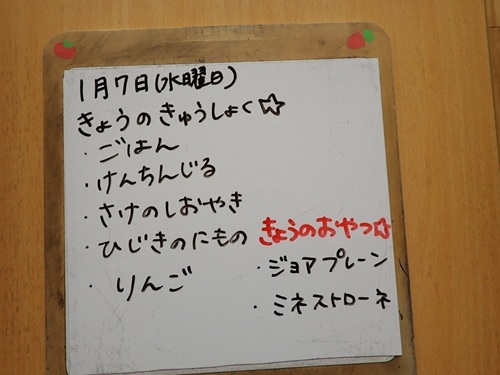 1月7日(水曜日)
きょうのきゅうしょく☆
・ごはん
・けんちんじる
・さけのしおやき
・ひじきのにもの
・りんご
きょうのおやつ☆
・ジョアプレーン
・ミネストローネ